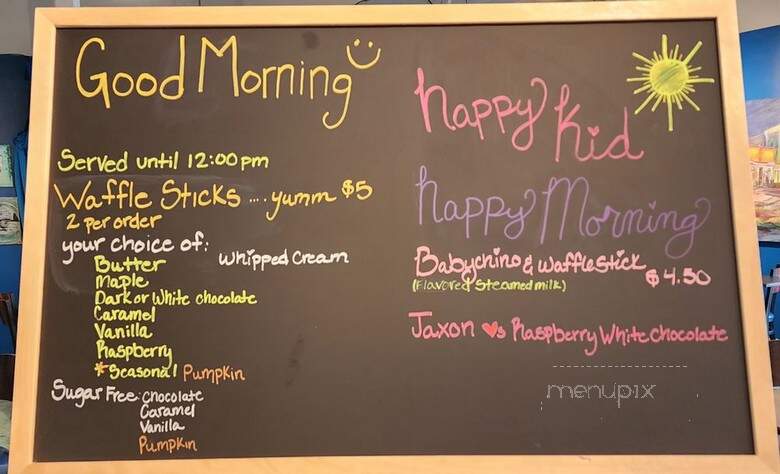 Good Morning
Served until 12:00pm
Waffle Sticks .... yumm $5
2 per order
your choice of:
Whipped Cream
Butter
Maple
Dark or White chocolate
Caramel
Vanilla
Raspberry
*Seasonal Pumpkin
Sugar Free: Chocolate
Caramel
Vanilla
Pumpkin
Happy Kid
Happy Morning
Babychino & Waffle Stick $4.50
(Flavored Steamed milk)
Jaxon ♥s Raspberry White Chocolate
menupix